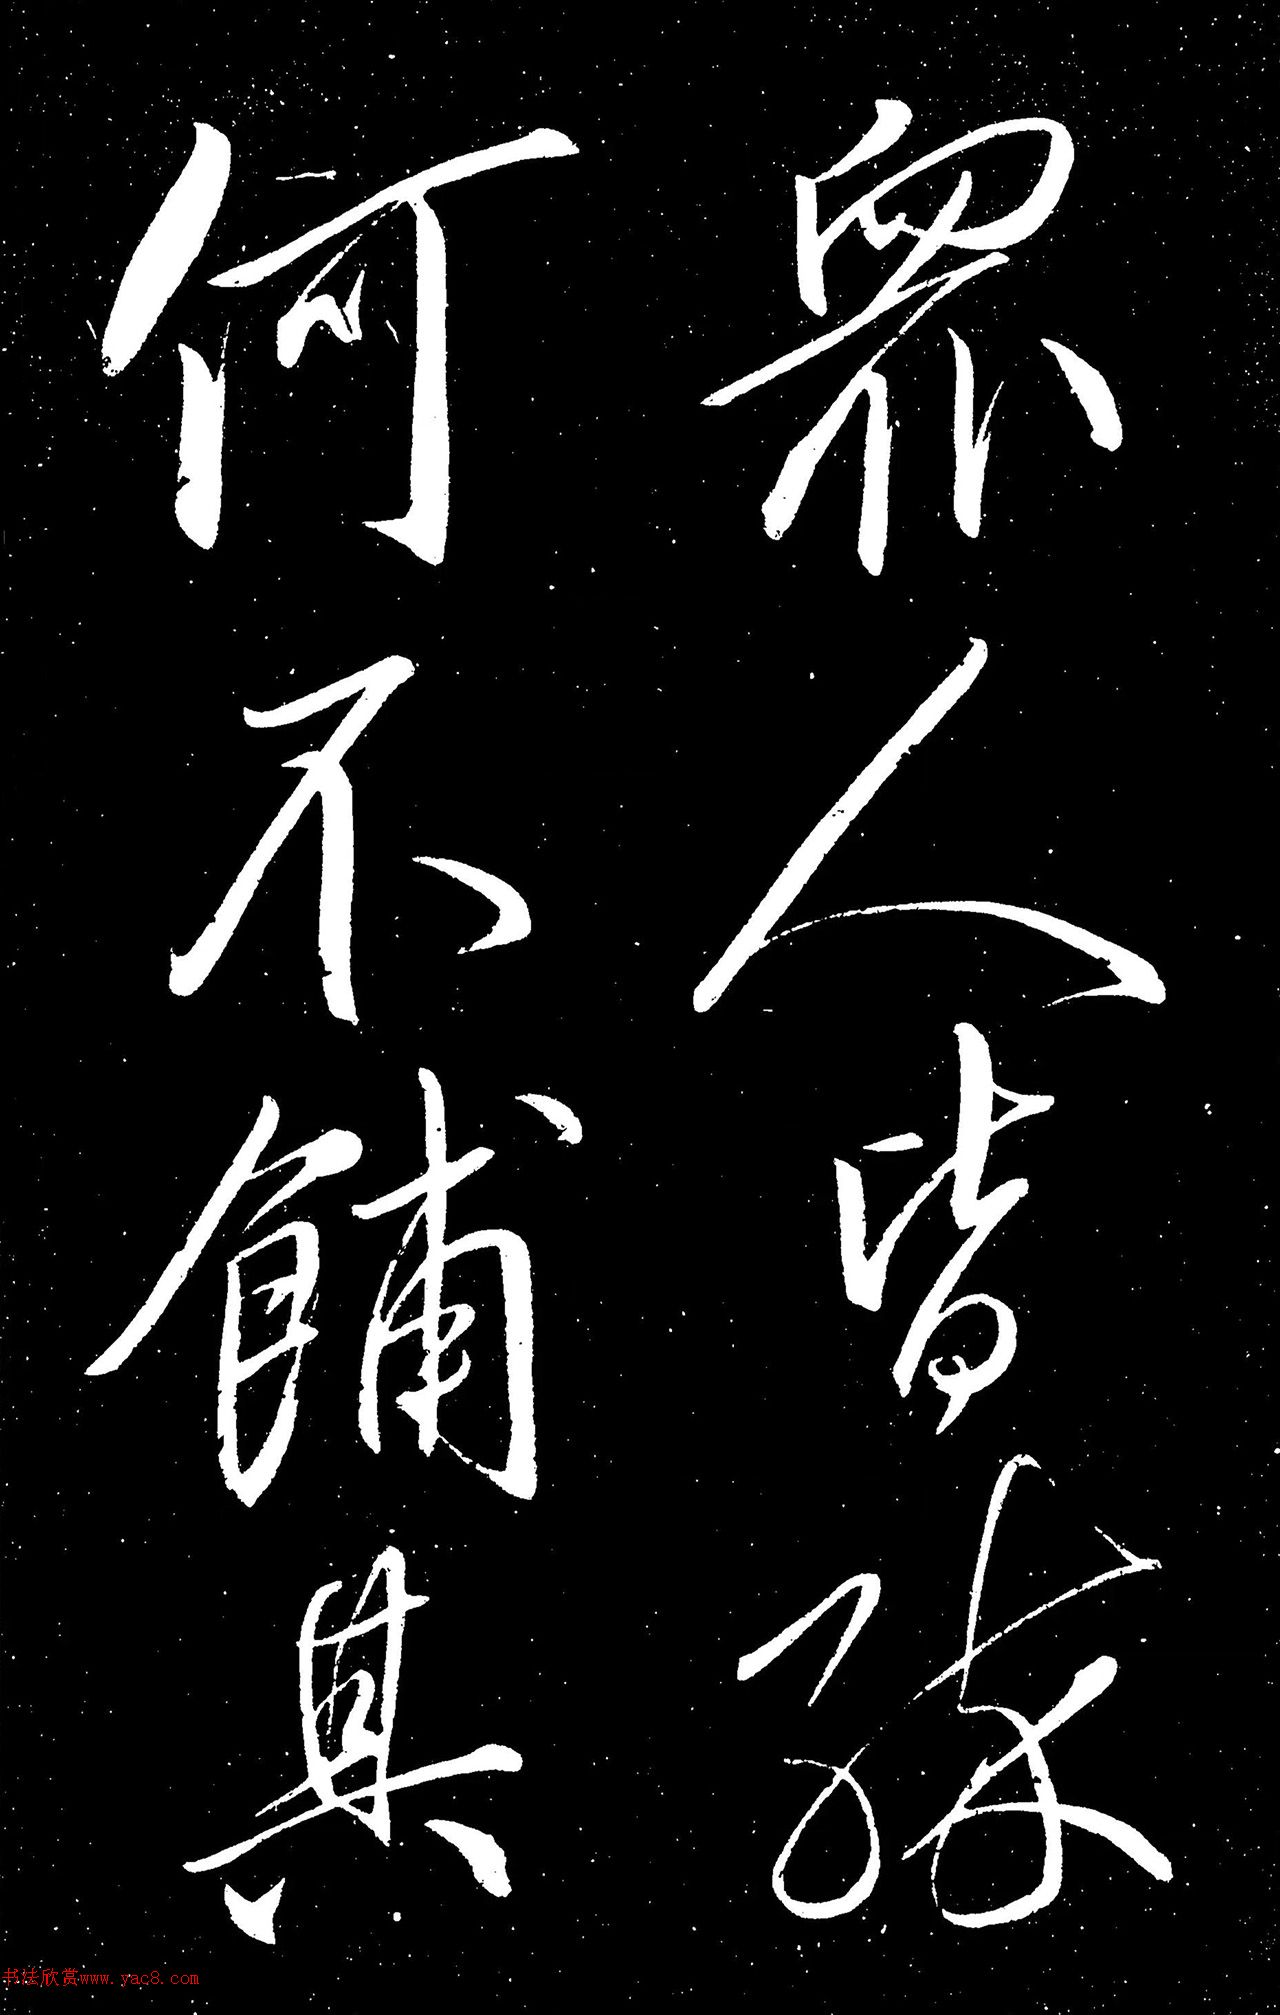 眾人皆醉
何不餔其
书法欣赏www.yac8.com